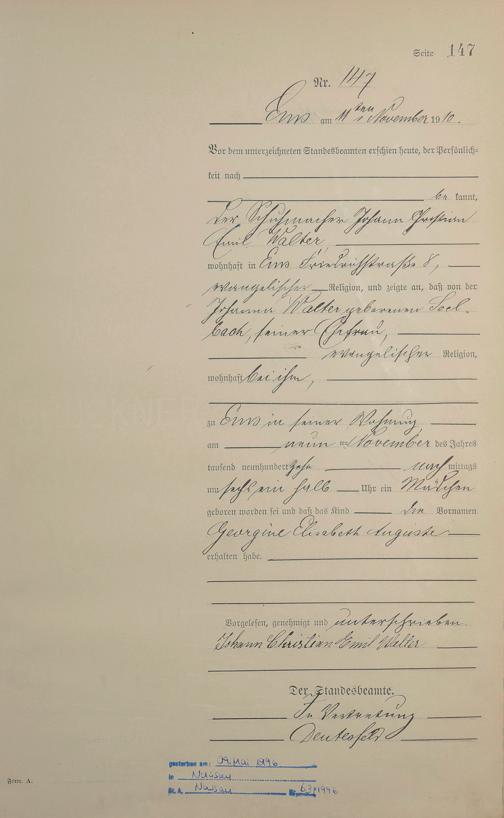 Seite 147
Nr. 147
Ems am 11ten November 1910.
Vor dem unterzeichneten Standesbeamten erschien heute, der Persönlich-
keit nach
be kannt,
der Schuhmacher Johann Christian
Emil Walter,
wohnhaft in Ems Friedrichstraße 8,
evangelischer Religion, und zeigte an, daß von der
Johanna Walter geborenen Seel-
bach, seiner Ehefrau,
evangelischer Religion,
wohnhaft bei ihm,
zu Ems in seiner Wohnung
am neun ten November des Jahres
tausend neunhundert zehn nach mittags
um sechs ein halb Uhr ein Mädchen
geboren worden sei und daß das Kind die Vornamen
Georgine Elisabeth Auguste
erhalten habe.
Vorgelesen, genehmigt und unterschrieben.
Johann Christian Emil Walter
Der Standesbeamte.
In Vertretung
gestorben am: 09. Mai 1996
in Nassau
St. A. Nassau 63/1996
Form. A.